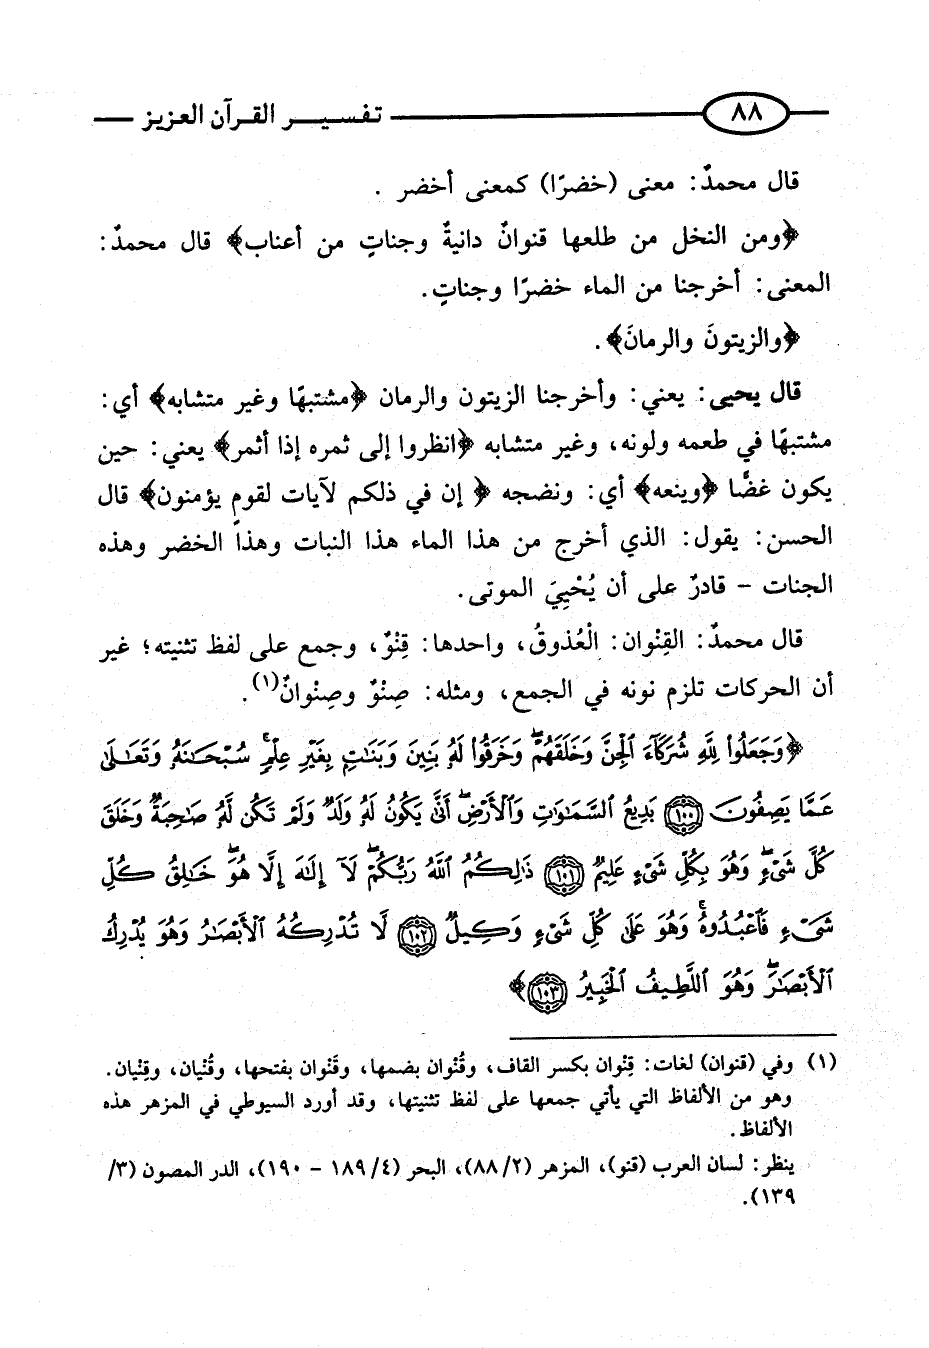 ٨٨ تفسير القرآن العزيز
قال محمدٌ: معنى (خضرًا) كمعنى أخضر .
﴿ومن النخل من طلعها قنوانٌ دانيةٌ وجناتٍ من أعناب﴾ قال محمدٌ:
المعنى: أخرجنا من الماء خضرًا وجناتٍ.
﴿والزيتونَ والرمانَ﴾.
قال يحيى: يعني: وأخرجنا الزيتون والرمان ﴿مشتبهًا وغير متشابه﴾ أي:
مشتبهًا في طعمه ولونه، وغير متشابه ﴿انظروا إلى ثمره إذا أثمر﴾ يعني: حين
يكون غضًّا ﴿وينعه﴾ أي: ونضجه ﴿ إن في ذلكم لآيات لقومٍ يؤمنون﴾ قال
الحسن: يقول: الذي أخرج من هذا الماء هذا النبات وهذا الخضر وهذه
الجنات – قادرٌ على أن يُحْيِيَ الموتى.
قال محمدٌ: القِنْوان: الْعُذوقُ، واحدها: قِنْوٌ، وجمع على لفظ تثنيته؛ غير
أن الحركات تلزم نونه في الجمع، ومثله: صِنْوٌ وصِنْوانٌ(١).
﴿وَجَعَلُوا۟ لِلَّهِ شُرَكَآءَ ٱلْجِنَّ وَخَلَقَهُمْ ۖ وَخَرَقُوا۟ لَهُۥ بَنِينَ وَبَنَٰتٍۭ بِغَيْرِ عِلْمٍ ۚ سُبْحَٰنَهُۥ وَتَعَٰلَىٰ
عَمَّا يَصِفُونَ ١٠٠ بَدِيعُ ٱلسَّمَٰوَٰتِ وَٱلْأَرْضِ ۖ أَنَّىٰ يَكُونُ لَهُۥ وَلَدٌ وَلَمْ تَكُن لَّهُۥ صَٰحِبَةٌ ۖ وَخَلَقَ
كُلَّ شَىْءٍ ۖ وَهُوَ بِكُلِّ شَىْءٍ عَلِيمٌ ١٠١ ذَٰلِكُمُ ٱللَّهُ رَبُّكُمْ ۖ لَآ إِلَٰهَ إِلَّا هُوَ ۖ خَٰلِقُ كُلِّ
شَىْءٍ فَٱعْبُدُوهُ ۚ وَهُوَ عَلَىٰ كُلِّ شَىْءٍ وَكِيلٌ ١٠٢ لَّا تُدْرِكُهُ ٱلْأَبْصَٰرُ وَهُوَ يُدْرِكُ
ٱلْأَبْصَٰرَ ۖ وَهُوَ ٱللَّطِيفُ ٱلْخَبِيرُ ١٠٣﴾
(١) وفي (قنوان) لغات: قِنْوان بكسر القاف، وقُنْوان بضمها، وقَنْوان بفتحها، وقُنْيان، وقِنْيان.
وهو من الألفاظ التي يأتي جمعها على لفظ تثنيتها، وقد أورد السيوطي في المزهر هذه
الألفاظ.
ينظر: لسان العرب (قنو)، المزهر (٢/ ٨٨)، البحر (٤/ ١٨٩ – ١٩٠)، الدر المصون (٣/
١٣٩).